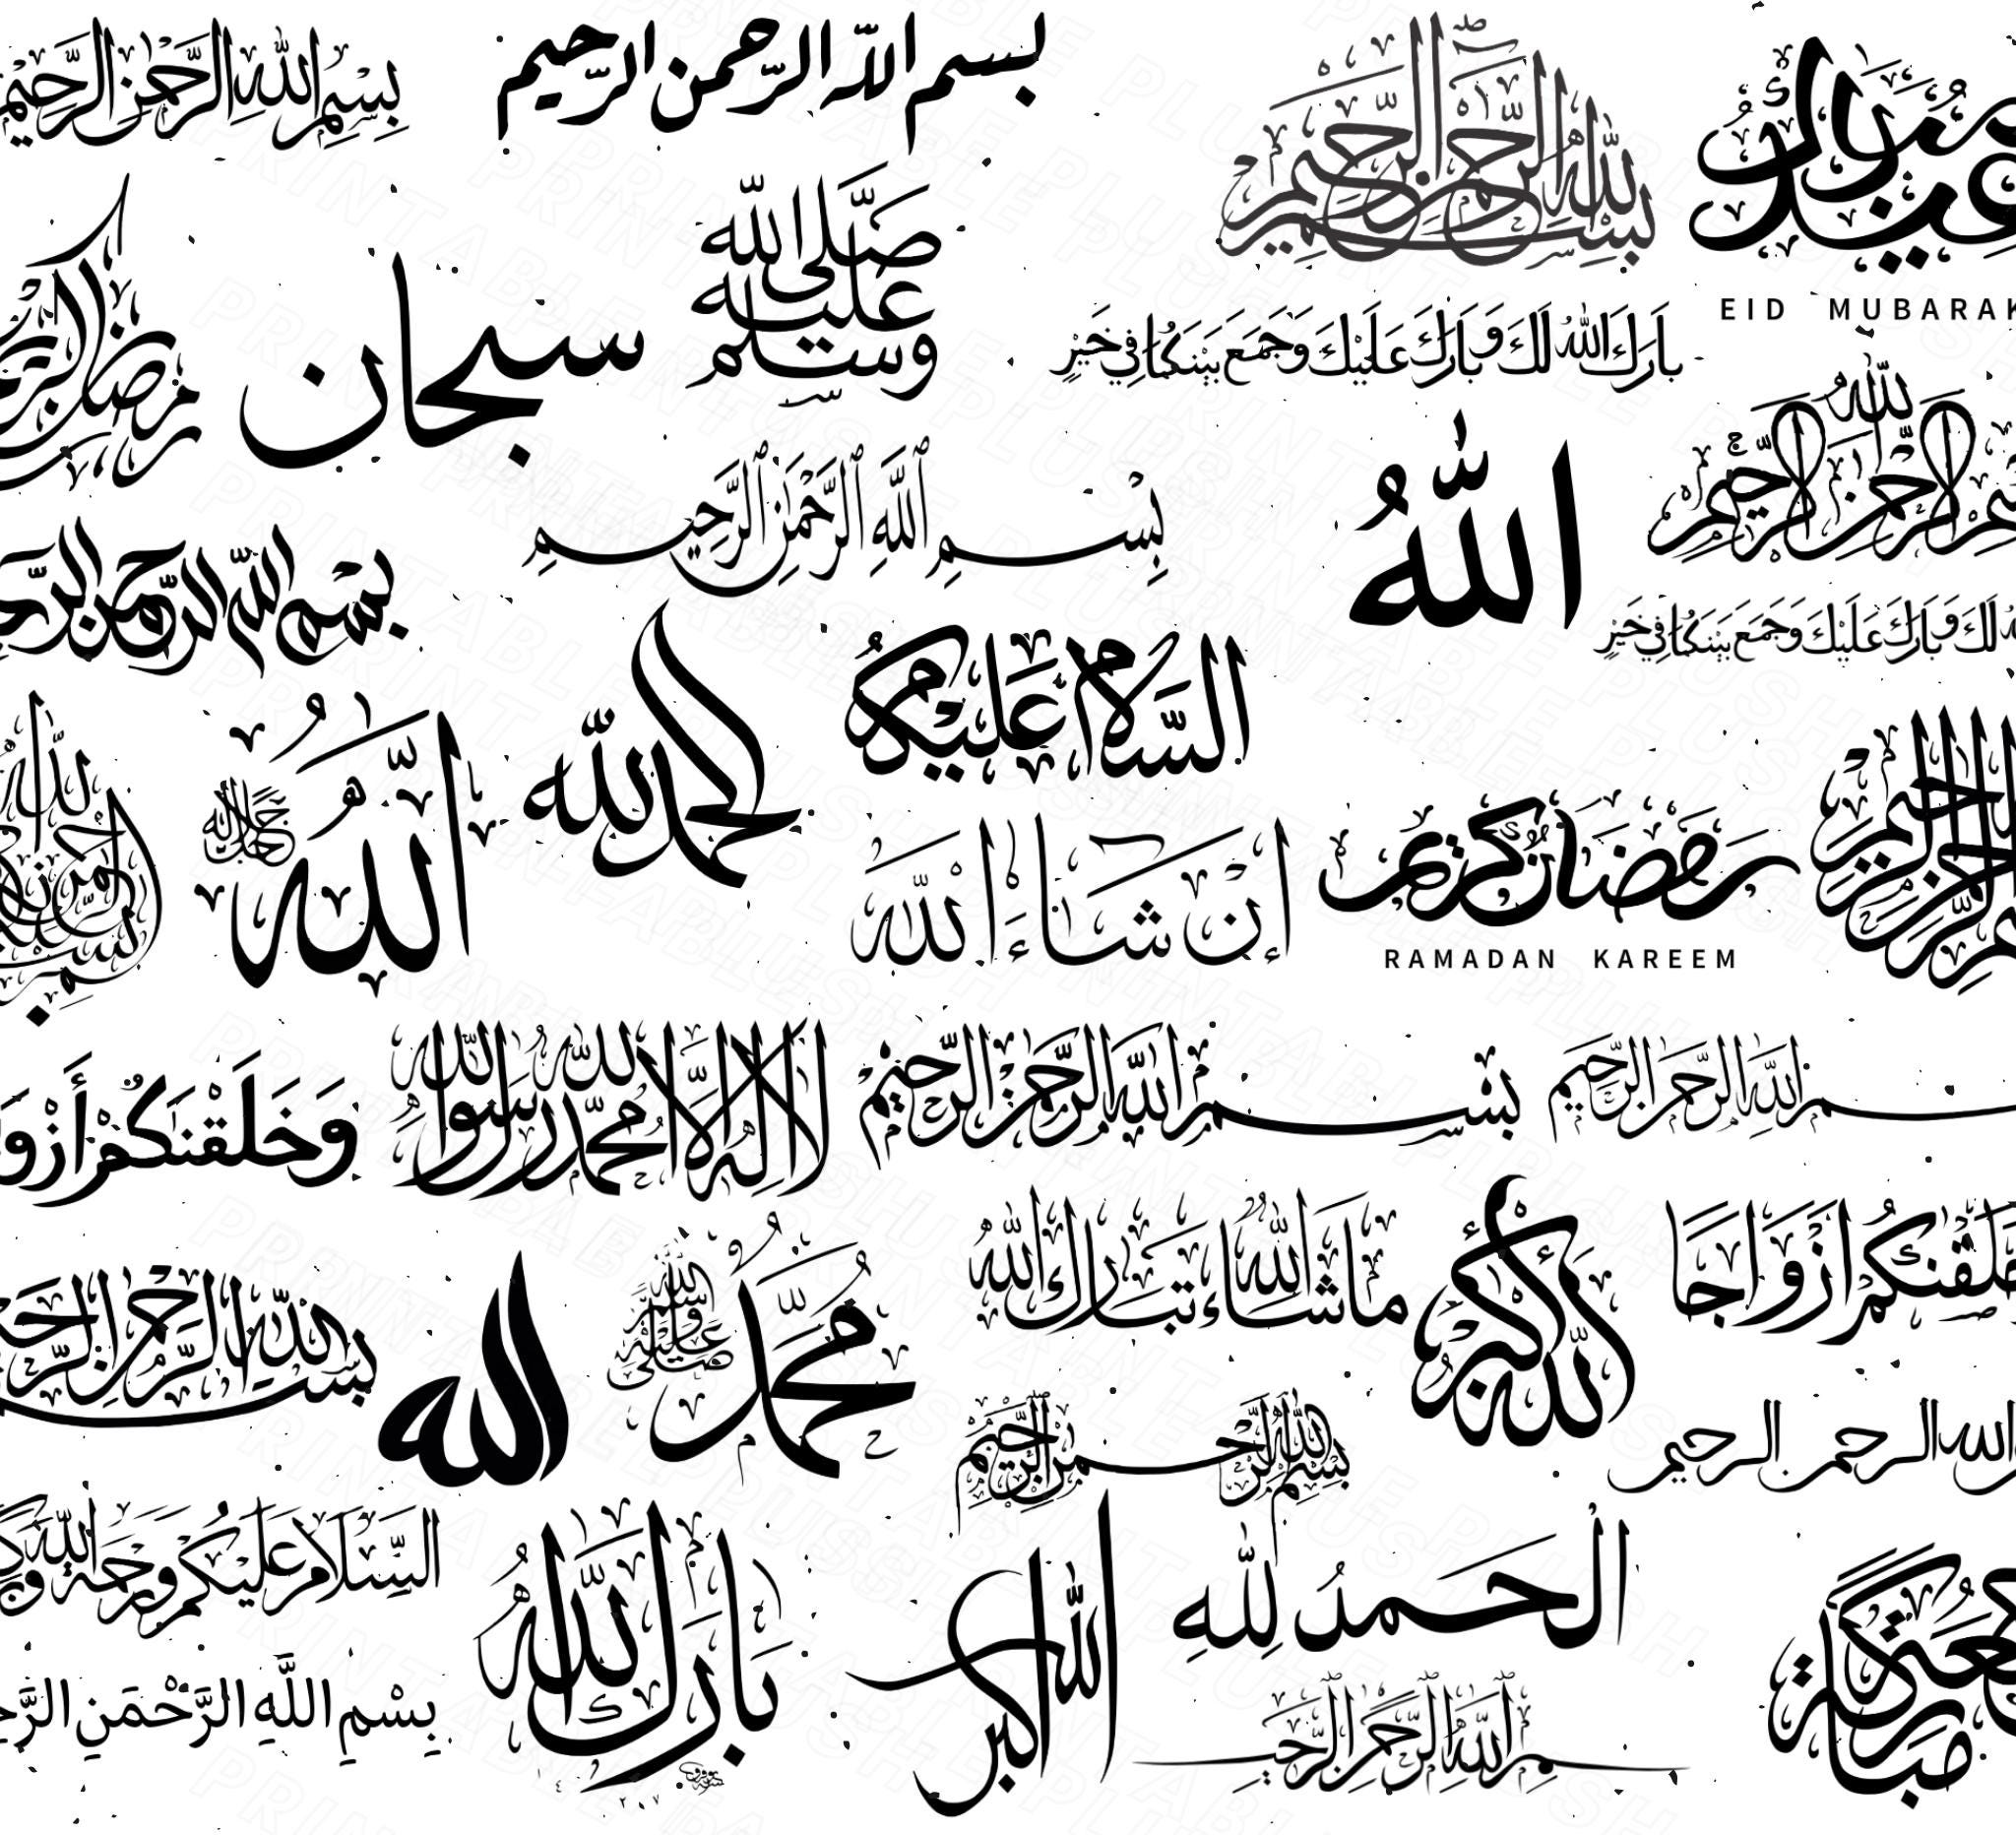 بِسْمِ اللهِ الرَّحْمٰنِ الرَّحِيْمِ
بسم الله الرحمن الرحيم
بسم الله الرحمن الرحيم
عيد مبارك
EID MUBARAK
رمضان
سبحان
صَلَّى اللهُ عَلَيْهِ وَسَلَّمَ
بَارَكَ اللهُ لَكَ وَبَارَكَ عَلَيْكَ وَجَمَعَ بَيْنَكُمَا فِي خَيْرٍ
بِسْمِ ٱللَّهِ ٱلرَّحْمَٰنِ ٱلرَّحِيمِ
اللهُ
الرحمن الرحيم
بسم الله الرحمن
لَكَ وَبَارَكَ عَلَيْكَ وَجَمَعَ بَيْنَكُمَا فِي خَيْرٍ
السلام عليكم
الحمد لله
اللَّهُ
جل جلاله
إن شاء الله
رمضان كريم
RAMADAN KAREEM
وَخَلَقْنَاكُمْ أَزْوَا
لا إله إلا الله محمد رسول الله
بسم الله الرحمن الرحيم
سم الله الرحمن الرحيم
ما شاء الله تبارك الله
الله أكبر
خلقنكم ازواجا
بسم الله الرحمن الرحيم
الله
محمد
صلى الله عليه وسلم
بسم الله الرحمن الرحيم
الله الرحمن الرحيم
السلام عليكم ورحمة الله
بارك الله
الله اكبر
الحمد لله
جمعة مباركة
بِسْمِ اللَّهِ الرَّحْمَنِ
بسم الله الرحمن الرحيم